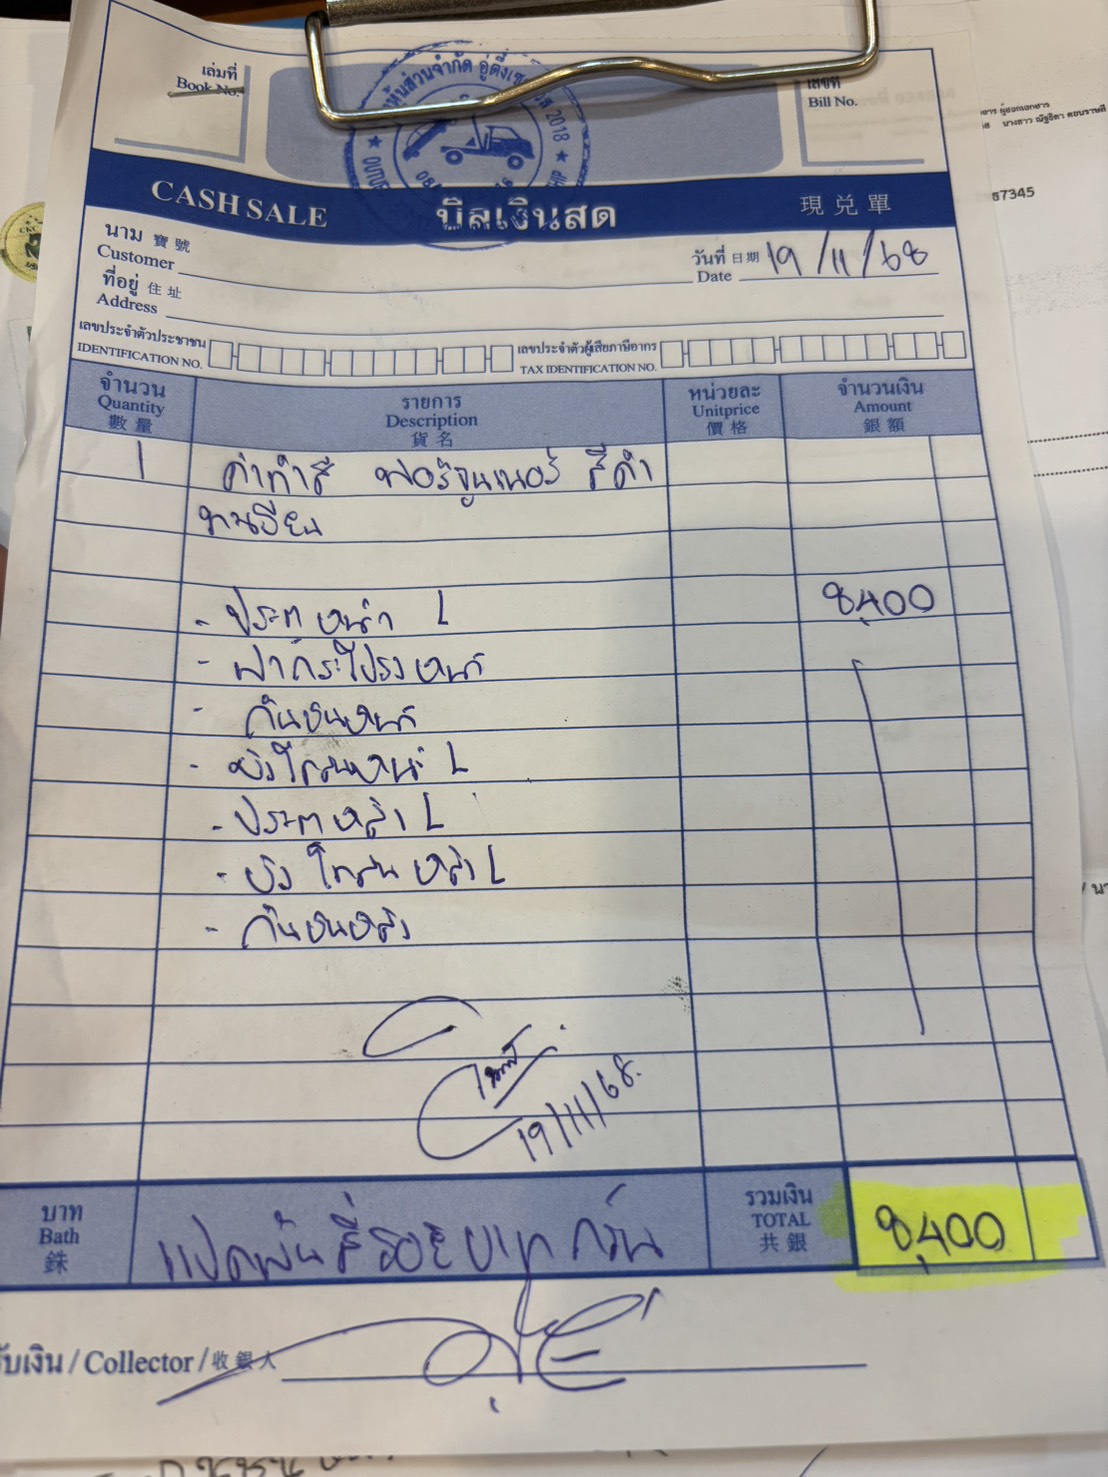 เล่มที่
Book No.
หุ้นส่วนจำกัด อู่ตึ๋งเซ
2018
เลขที่
Bill No.
CASH SALE บิลเงินสด 現兑單
นาม 寶號
Customer
วันที่ 日期 19/11/68
Date
ที่อยู่ 住址
Address
เลขประจำตัวประชาชน
IDENTIFICATION NO.
เลขประจำตัวผู้เสียภาษีอากร
TAX IDENTIFICATION NO.
จำนวน รายการ หน่วยละ จำนวนเงิน
Quantity Description Unitprice Amount
數量 貨名 價格 銀額
1 ค่าทำสี ฟอร์จูนเนอร์ สีดำ
- ประตูหน้า L 8,400
- ฝากระโปรงหน้า
- กันชนหน้า
- บังโคลนหน้า L
- ประตูหลัง L
- บังโคลนหลัง L
- กันชนหลัง
19/11/68.
บาท
Bath
銖
แปดพันสี่ร้อยบาทถ้วน
รวมเงิน
TOTAL
共銀
8,400
รับเงิน / Collector / 收銀人
นางสาว ณัฐธิดา
67345